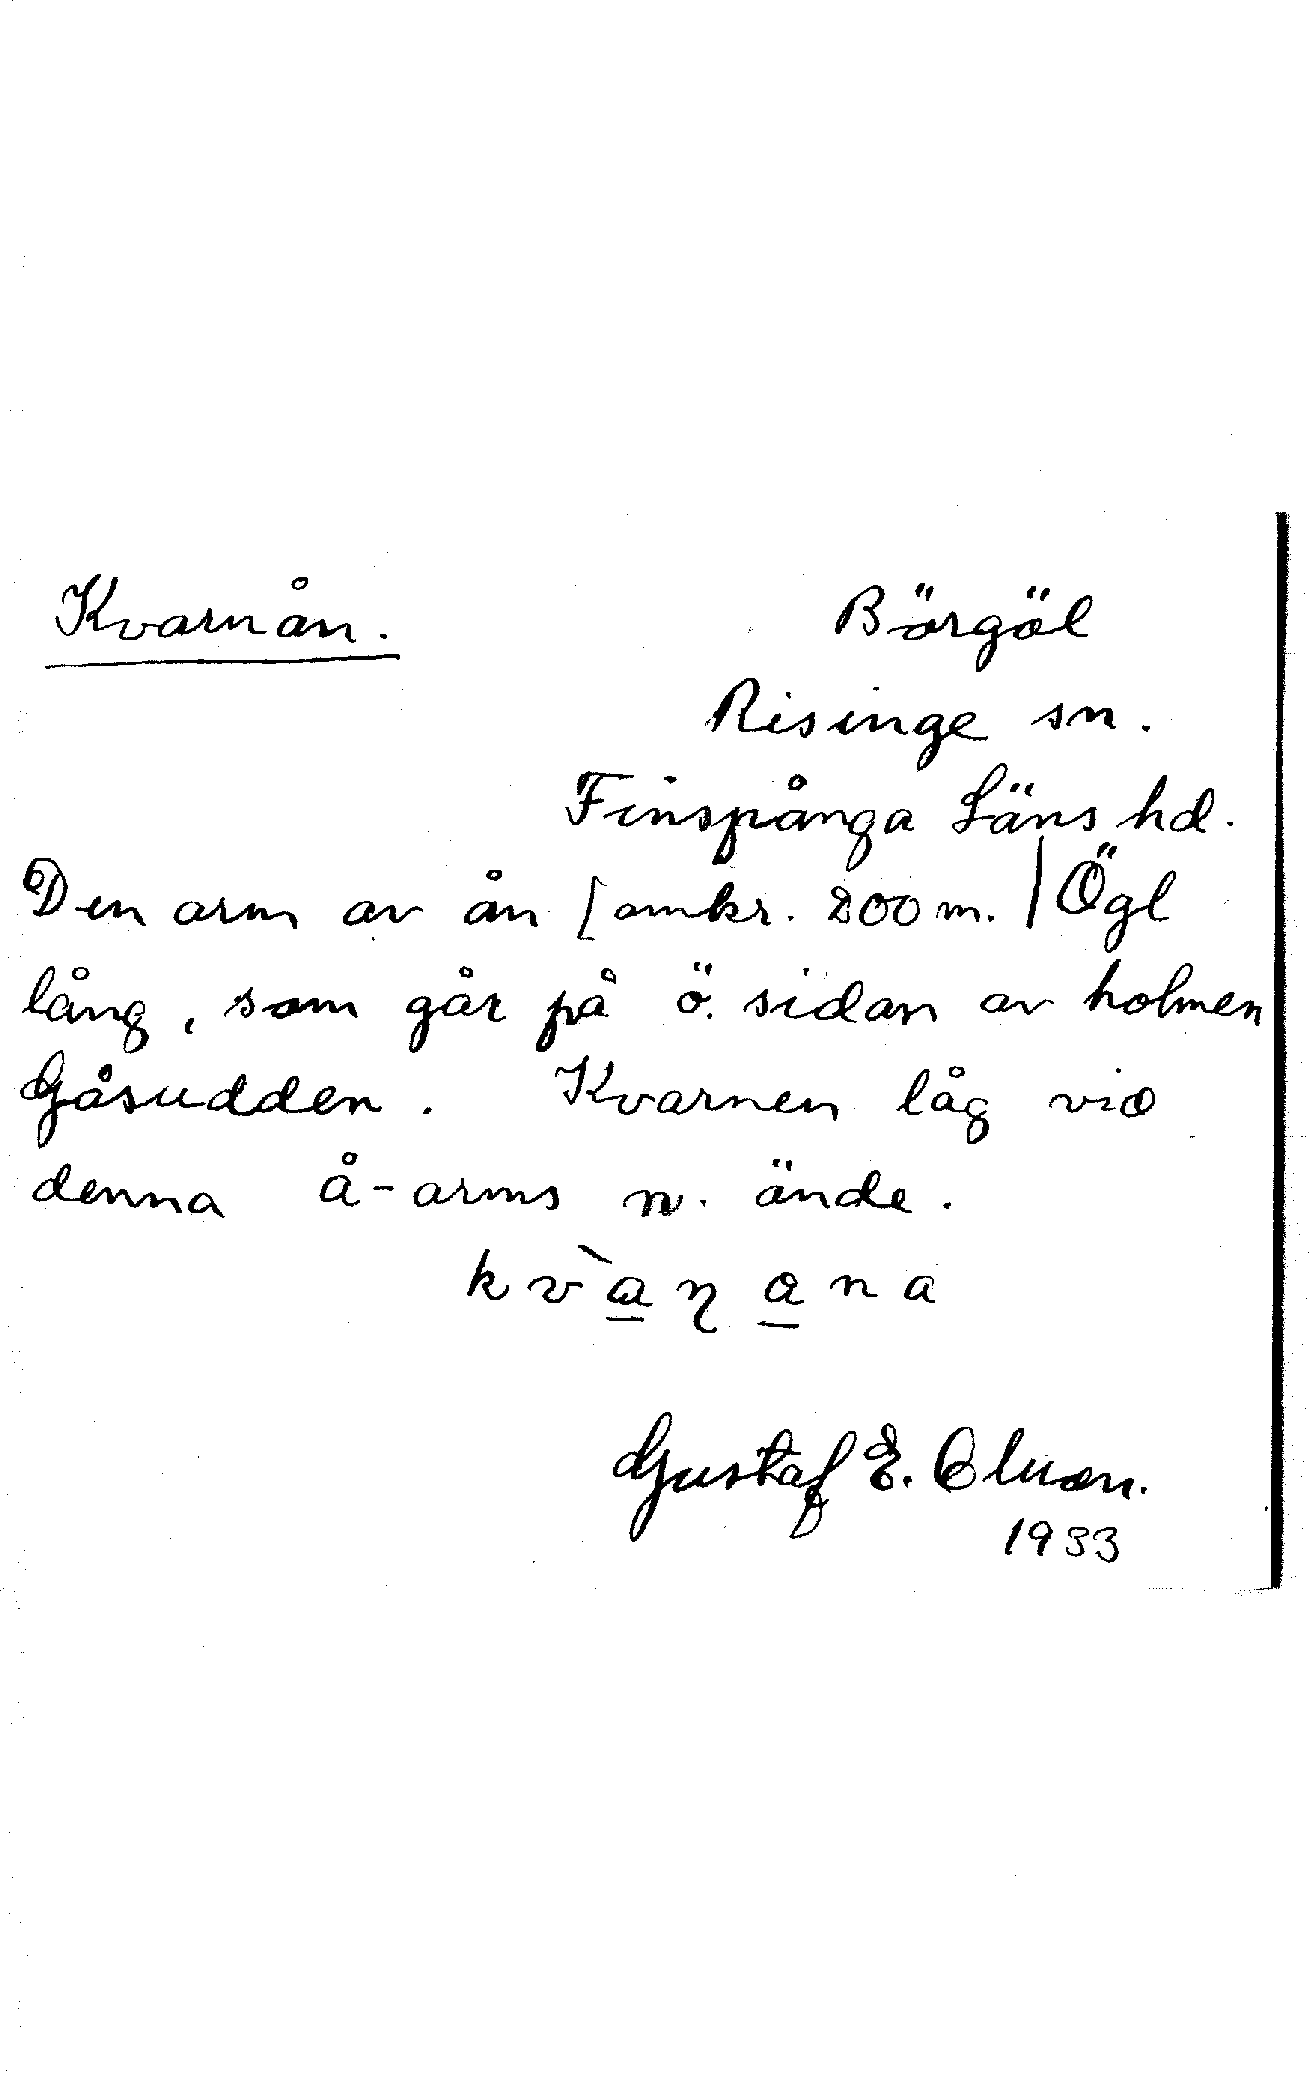 Kvarnån. Börgöl
Risinge sn.
Finspånga Läns hd.
Den arm av ån [omkr. 200 m. | Ögl
lång, som går på ö. sidan av holmen
Gåsudden. Kvarnen låg vid
denna å-arms n. ände.
kv̀a̲ɳa̲na
Gustaf E.
1933